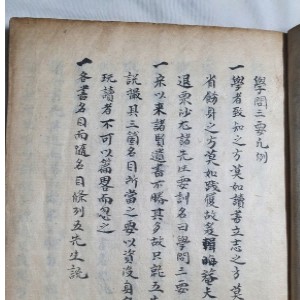 學問三要凡例
一學者致知之方莫如讀書立志之方莫
省飭身之方莫如踐履故茲輯晦菴
退栗沙尤諸先生要訓名曰學問三要
一宋以來諸賢遺書不勝其多故只就五
說撮其三箇名目所當之要以資沒身
玩讀者不可以篇畧而忽之
一各書名目而隨名目條列五先生說